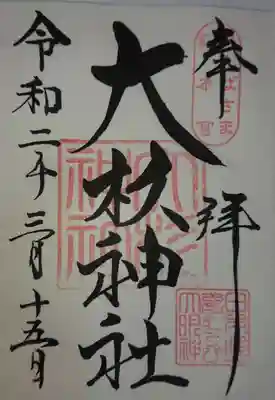 奉拝
大杉神社
令和二年三月十五日